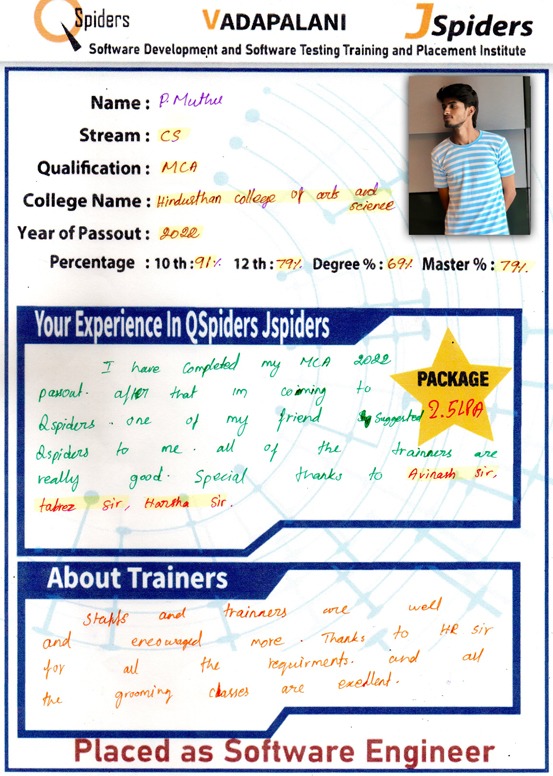 QSpiders VADAPALANI JSpiders
Software Development and Software Testing Training and Placement Institute
Name : P. Muthu
Stream : CS
Qualification : MCA
College Name : Hindusthan college of arts and
science
Year of Passout : 2022
Percentage : 10 th : 91% 12 th : 79% Degree % : 69% Master % : 79%
Your Experience In QSpiders Jspiders
I have completed my MCA 2022
passout. after that im coming to
Qspiders. one of my friend suggested
Qspiders to me. all of the trainners are
really good. Special thanks to Avinash sir,
tabrez sir, Harsha sir.
PACKAGE
2.5LPA
About Trainers
Staffs and trainners are well
and encouraged more. Thanks to HR sir
for all the requirments. and all
the grooming classes are exellent.
Placed as Software Engineer